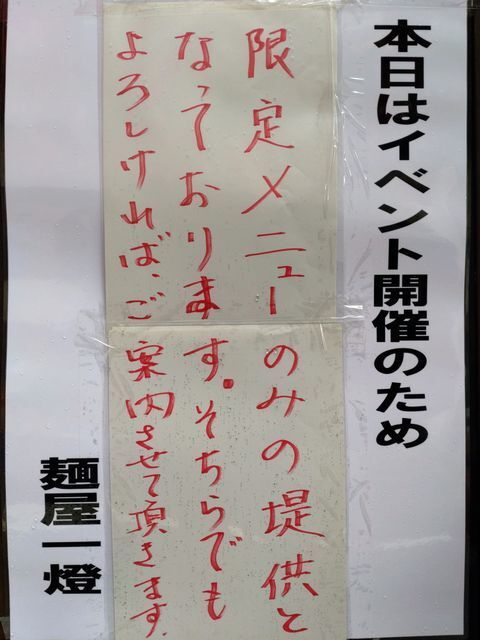 本日はイベント開催のため
限定メニューのみの堤供と
なっております。そちらでも
よろしければ、ご案内させて頂きます。
麺屋一燈